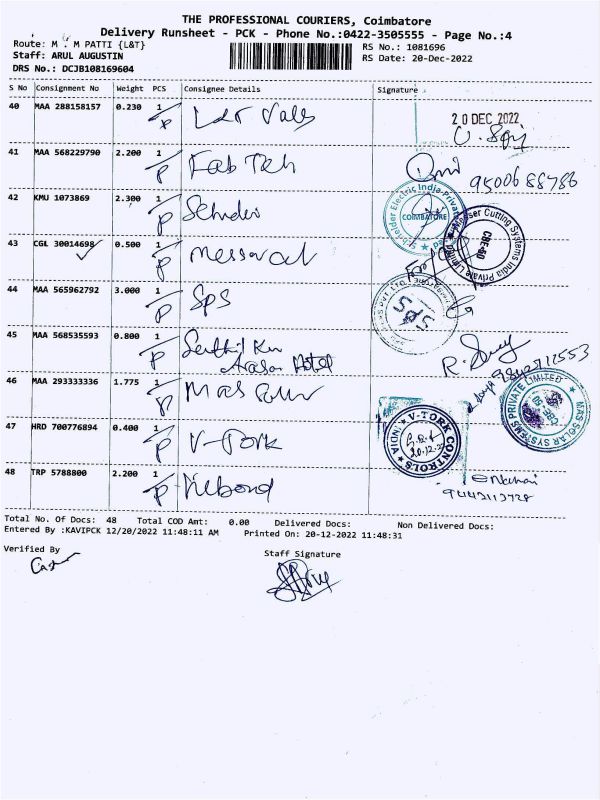 THE PROFESSIONAL COURIERS, Coimbatore
Delivery Runsheet - PCK - Phone No.:0422-3505555 - Page No.:4
Route: M . M PATTI {L&T}
RS No.: 1081696
Staff: ARUL AUGUSTIN
RS Date: 20-Dec-2022
DRS No.: DCJB108169604
S No Consignment No Weight PCS Consignee Details Signature
40 MAA 288158157 0.230 1 P L&T Valls
20 DEC 2022
41 MAA 568229790 2.200 1 P Fab Teh
9500688786
42 KMU 1073869 2.300 1 P Schnder
Schneider Electric India Private
COIMBATORE
43 CGL 30014698 0.500 1 P
Messer Cutting Systems India Private Limited
CBE-60
44 MAA 565962792 3.000 1 P SPS
SPS
45 MAA 568535593 0.800 1 P Senthil Ku
Arasan Hotel
46 MAA 293333336 1.775 1 P Mas Solar
MAS SOLAR SYSTEMS PRIVATE LIMITED
47 HRD 700776894 0.400 1 P V-Tork
V-TORK CONTROLS INDIA
20.12.22
48 TRP 5788800 2.200 1 P
Total No. Of Docs: 48 Total COD Amt: 0.00 Delivered Docs: Non Delivered Docs:
Entered By :KAVIPCK 12/20/2022 11:48:11 AM Printed On: 20-12-2022 11:48:31
Verified By
Staff Signature